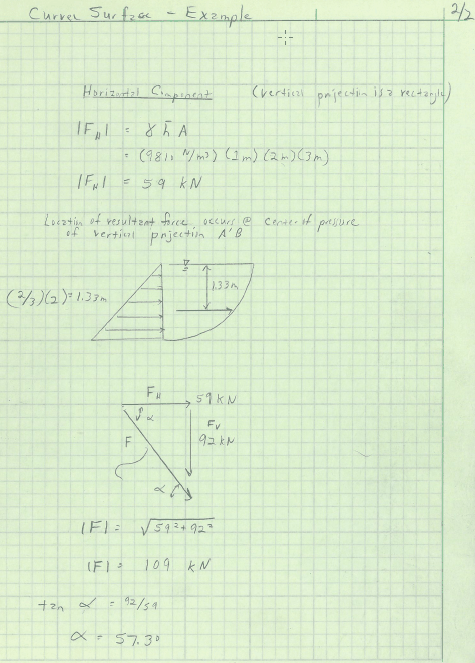 Curved Surface - Example 2/2
Horizontal Component (vertical projection is a rectangle)
|F_H| = γ h̄ A
= (9811 N/m³) (1m) (2m)(3m)
|F_H| = 59 kN
Location of resultant force occurs @ center of pressure
of vertical projection A'B
(2/3)(2)=1.33m
1.33m
F_H 59 kN
α
F_V
F
92 kN
α
|F| = √59²+92²
|F| = 109 kN
tan α = 92/59
α = 57.3°